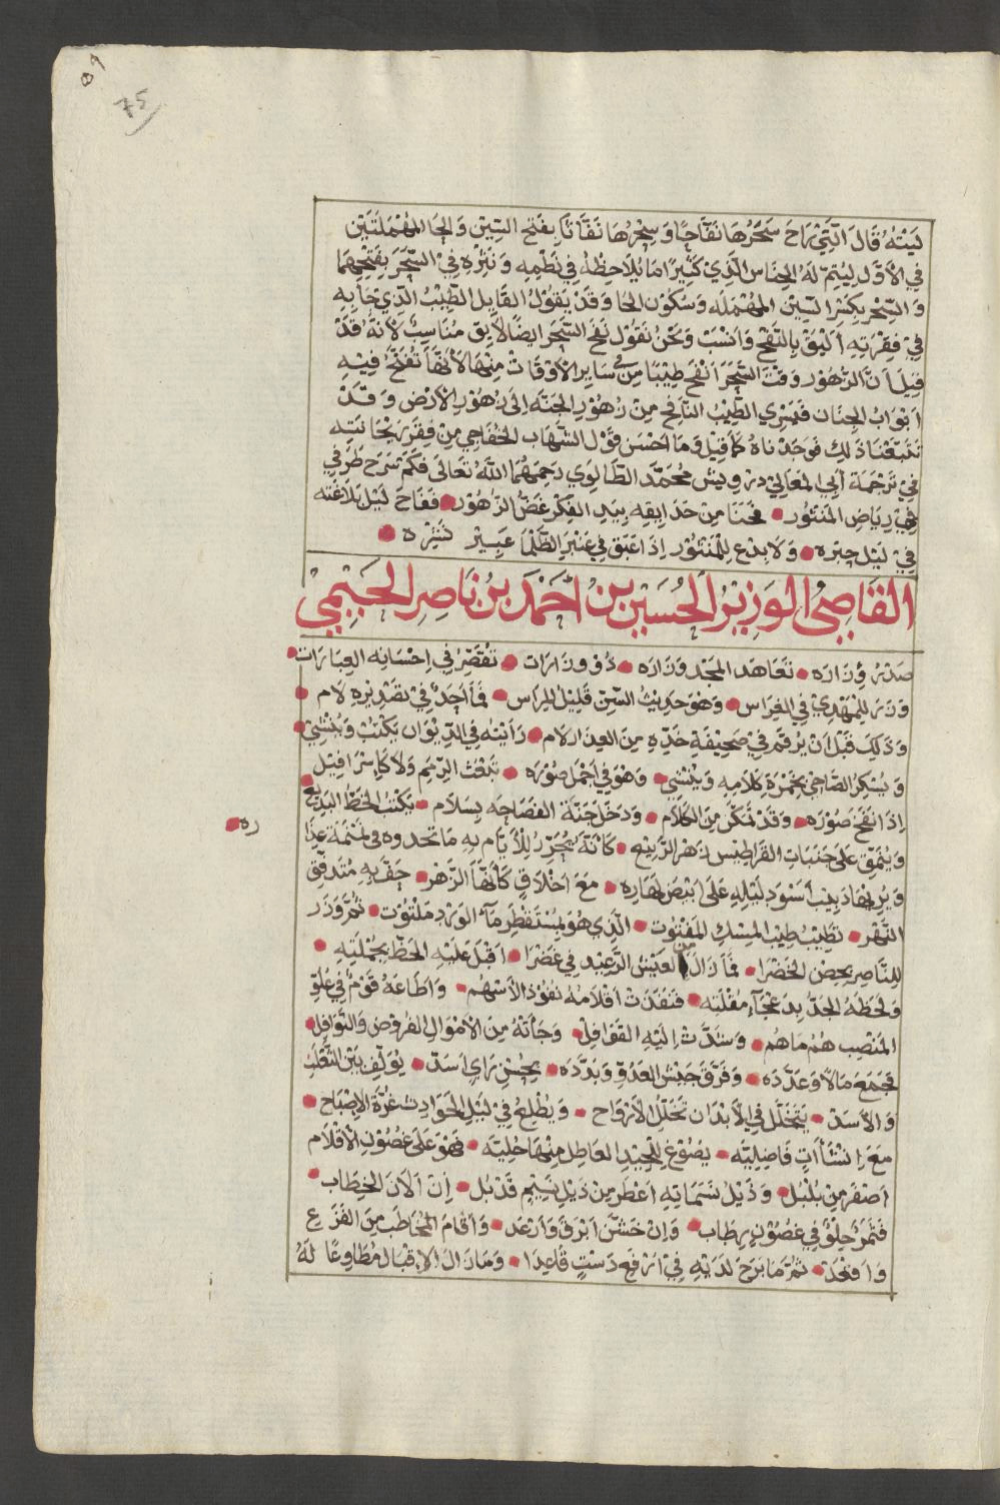 ٥٩
75
ليته قال التي راح سَحَرُها نفّاحًا وسِحْرُها نفّاثًا بفتح السين والحا المهملتين
في الاول ليتم له الجناس الذي كثيرًا ما يلاحظه في نظمه ونثره في السَّحَر بفتحهما
والسِّحْر بكسر السين المهمله وسكون الحا وقد يقول القايل الطيب الذي جا به
في فقرته أليق بالنفح وانسب ونحن نقول نفح السحر ايضًا لايق مناسب لانه قد
قيل ان الزهور وقت السحر انفح طيبًا من ساير الاوقات منها لانها تفتح فيه
ابواب الجنان فيسري الطيب النافح من زهور الجنه الى زهور الارض وقد
تتبعنا ذلك فوجدناه كما قيل وما احسن قول الشهاب الخفاجي من فقر ريحانته
في ترجمة أبي المعالي درويش محمد الطالوي رحمهما الله تعالى فكم سرح طرفي
في رياض المنثور فجنا من حدايقه بيد الفكر غض الزهور ففاح ليل بلاغته
في ليل حبره ولا بدع للمنثور اذا عبق في عنبر الظلما عبير نشره
القاضي الوزير الحسين بن أحمد بن ناصر الحيمي
صدر وزاره تعاهد المجد وزاره ذو وزارات تقصر في احسانه العبارات
وزر للمهدي في الغراس وهو حديث السن قليل المراس فما أجد في تقديره لام
وذلك قبل ان يرقم في صحيفة خده من العذار لام رأيته في الديوان يكتب وينشي
ويسكر الصاحي بخمرة كلامه وينتشي وهو في اجمل صوره تبعث الرميم ولا كاسرافيل
اذا نفخ صوره وقد تمكن من الكلام ودخل جنة الفصاحه بسلام يكتب الخط البديع
ره
وينمق على جنبات القراطيس زهر الربيع كأنه يحرر للأيام به ما تحدوه في نمنمة عذا
ويريها تذهيب أسود ليله على ابيض نهاره مع اخلاق كأنها الزهر حف به متدفق
النهر تطيب طيب المسك المفتوت الذي هو لمستقطر مآء الورد ملتوت ثم وزر
للناصر بحصن الخضرا فما زال من العيش الرغيد في غضرا اقبل عليه الحظ بجملته
ولحظه الجد بدعجآء مقلته فنفذت أقلامه نفوذ الأسهم واطاعه قوم في علو
المنصب هم ما هم وشدت اليه القوافل وجأته من الأموال الفروض والنوافل
فجمع مالًا وعدده وفرق جيش العدو وبدده بحسن راي اسد يولف بين الثعلب
والأسد يتخلل في الأبدان تخلل الأرواح ويطلع في ليل الحوادث غرة الإصباح
مع إنشآات فاضليه يصوغ للجيد العاطل منها حليته فهو على غصون الأقلام
أصفر من بلبل وذيل نسماته اعطر من ذيل نسيم قد بل إن ألان الخطاب
فثمر حلو في غصون رطاب وإن خشن ابرق وأرعد وأقام المخاطب من الفزع
واقعد ثم ما برح لديه في ارفع دست قاعدا وما زال الإقبال مطاوعًا له